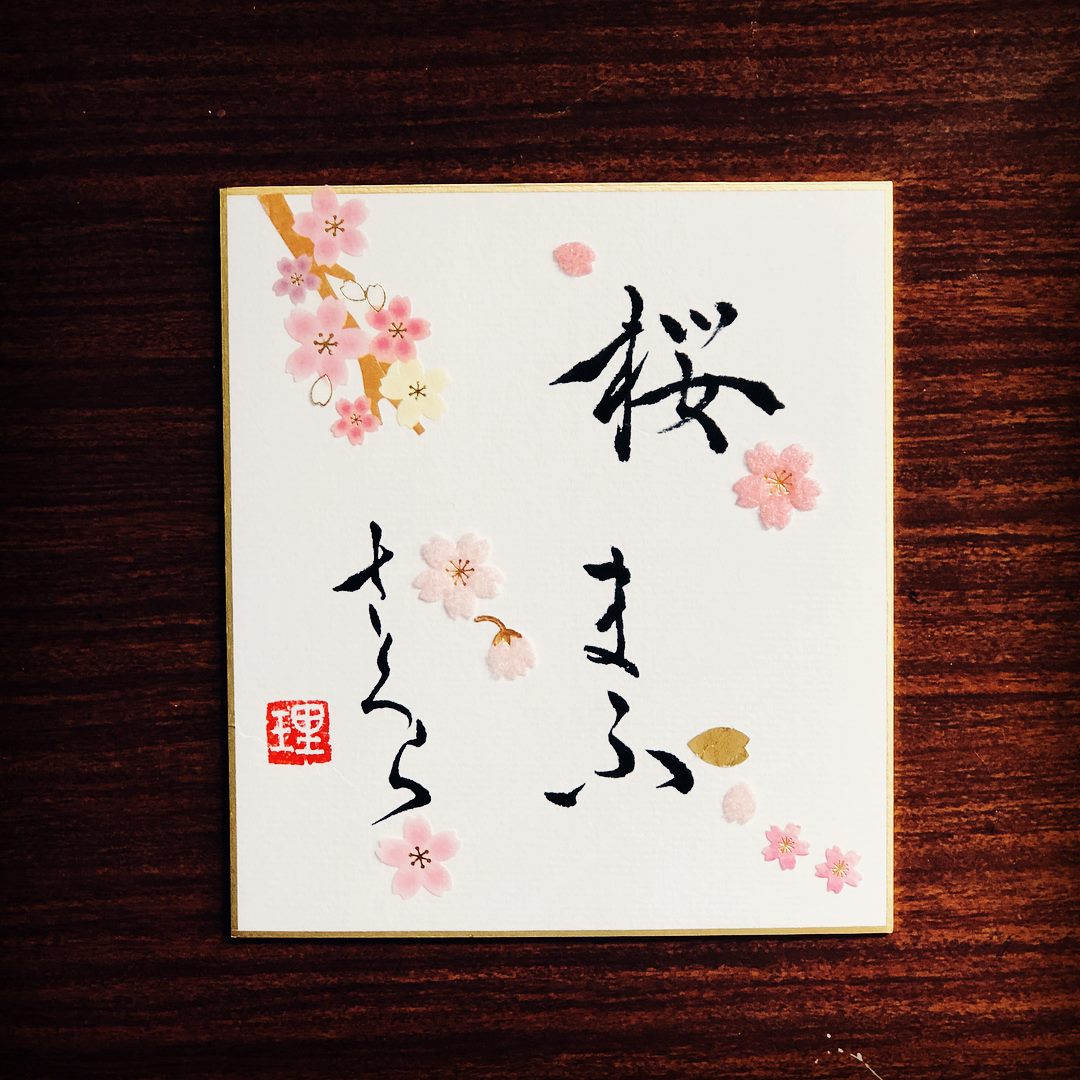 桜
まふ
さくら
理